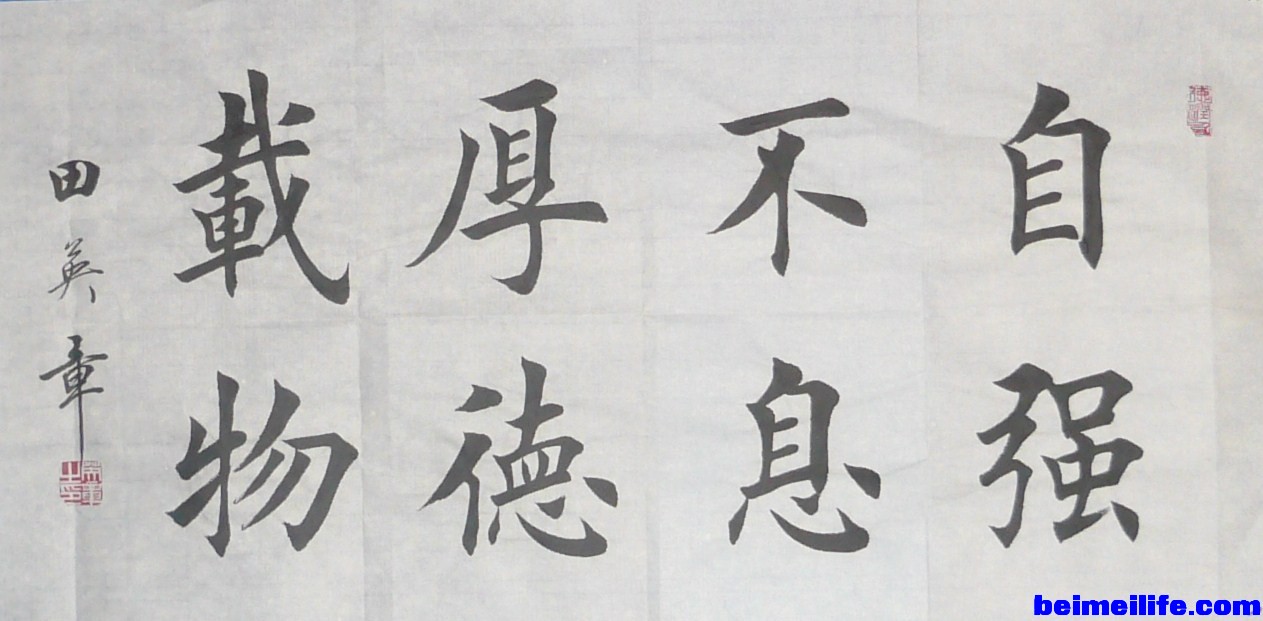 自强
不息
厚德
載物
田英章
beimeilife.com